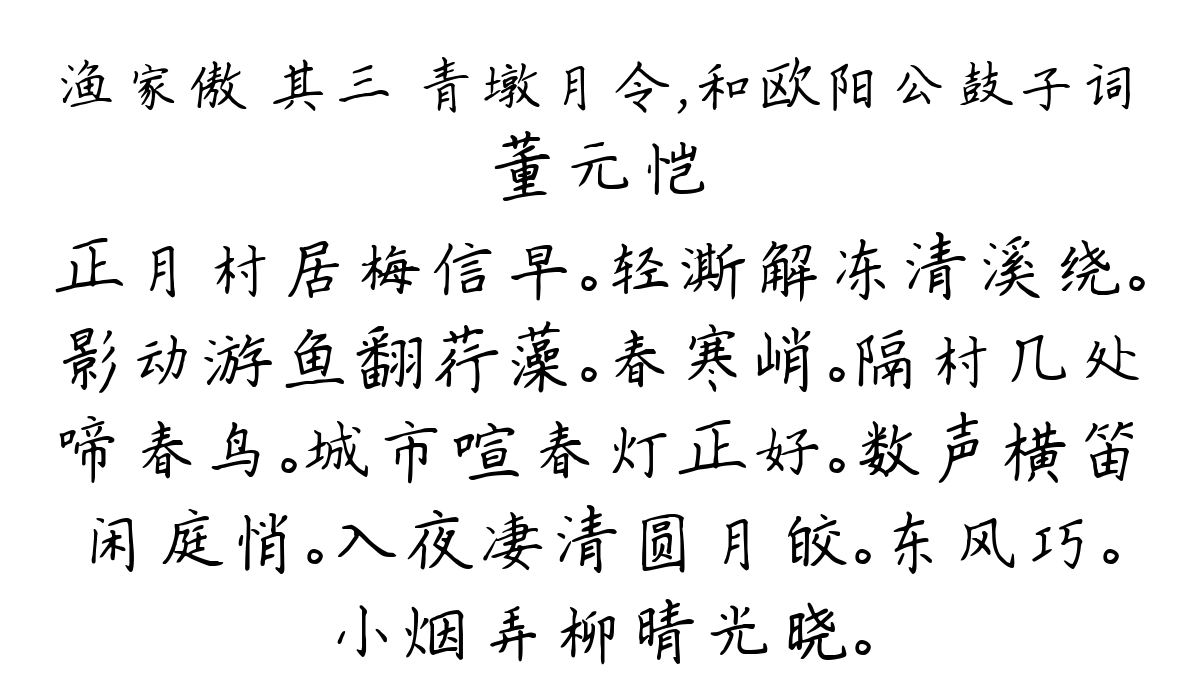 渔家傲 其三 青墩月令,和欧阳公鼓子词
董元恺
正月村居梅信早。轻澌解冻清溪绕。
影动游鱼翻荇藻。春寒峭。隔村几处
啼春鸟。城市喧春灯正好。数声横笛
闲庭悄。入夜凄清圆月皎。东风巧。
小烟弄柳晴光晓。